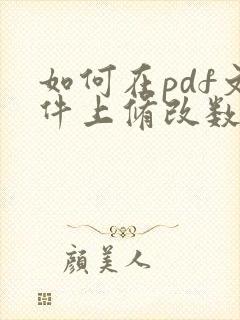 如何在pdf文
件上修改数
顏美人